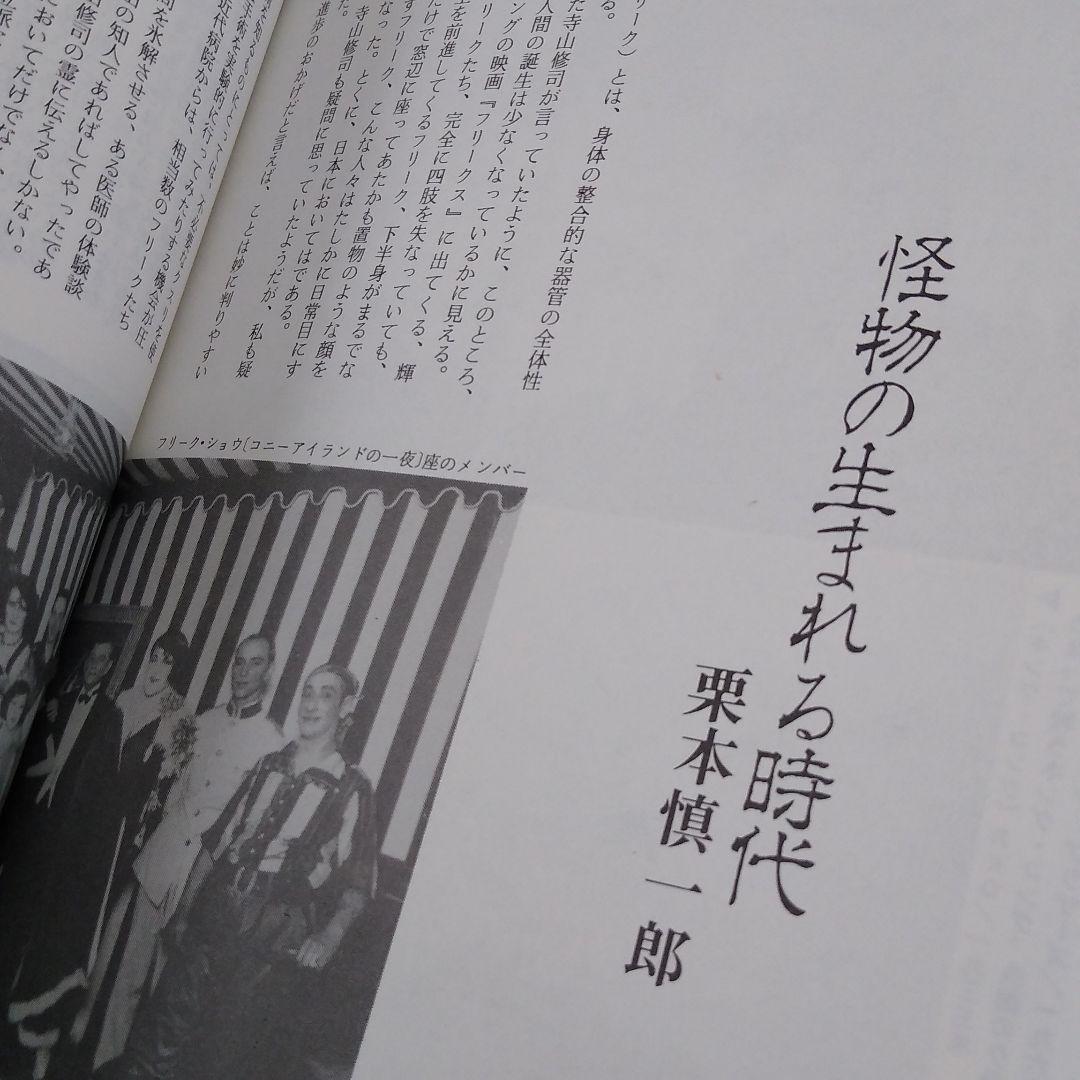 怪物の生まれる時代
栗本慎一郎
リーク）とは、身体の整合的な器管の全体性
る。
た寺山修司が言っていたように、このところ、
人間の誕生は少なくなっているかに見える。
ングの映画『フリークス』に出てくる、輝
リークたち、完全に四肢を失なっていても、
を前進してくるフリーク、下半身がまるでな
だけで窓辺に座ってあたかも置物のような顔を
すフリーク、こんな人々はたしかに日常目にす
なった。とくに、日本においてはである。
寺山修司も疑問に思っていたようだが、私も疑
た。
進歩のおかげだと言えば、ことは妙に判りやすい
手術を実験的に行ってみたりする機会が圧
近代病院からは、相当数のフリークたち
を氷解させる、ある医師の体験談
の知人であればしてやったであ
修司の霊に伝えるしかない。
においてだけでなく、
フリーク・ショウ〔コニーアイランドの一夜〕座のメンバー